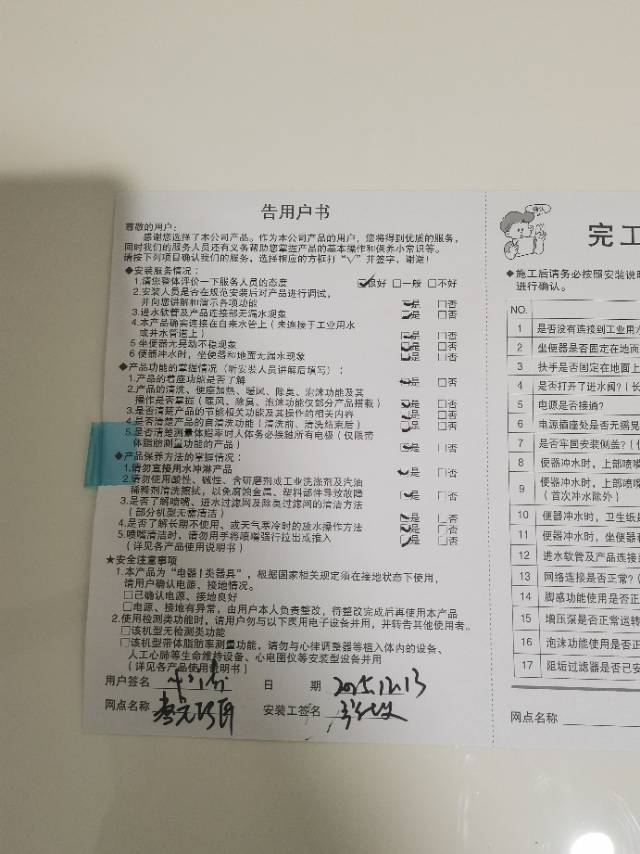 告用户书
尊敬的用户：
感谢您选择了本公司产品。作为本公司产品的用户，您将得到优质的服务，
同时我们的服务人员还有义务帮助您掌握产品的基本操作和保养小常识等。
请按下列项目确认我们的服务，选择相应的方框打“√”并签字，谢谢！
◆安装服务情况：
1.请您整体评价一下服务人员的态度 ☑很好 □一般 □不好
2.安装人员是否在规范安装后对产品进行调试，
并向您讲解和演示各项功能 ☑是 □否
3.进水软管及产品连接部无漏水现象 ☑是 □否
4.本产品确实连接在自来水管上（未连接于工业用水
或井水管道上） ☑是 □否
5.坐便器无晃动不稳现象 ☑是 □否
6.便器冲水时，坐便器和地面无漏水现象 ☑是 □否
◆产品功能的掌握情况（听安装人员讲解后填写）：
1.产品的着座功能是否了解 ☑是 □否
2.产品的清洗、便座加热、暖风、除臭、泡沫功能及其
操作是否掌握（暖风、除臭、泡沫功能仅部分产品搭载） ☑是 □否
3.是否清楚产品的节能相关功能及其操作的相关内容 ☑是 □否
4.是否清楚产品的自清洗功能（清洗前、清洗结束后） ☑是 □否
5.是否清楚测量体脂率时人体务必接触所有电极（仅限带
体脂肪测量功能的产品） ☑是 □否
◆产品保养方法的掌握情况：
1.请勿直接用水冲淋产品 ☑是 □否
2.请勿使用酸性、碱性、含研磨剂或工业洗涤剂及汽油
稀释剂清洗擦拭，以免腐蚀金属、塑料部件导致故障 ☑是 □否
3.是否了解喷嘴、进水过滤网及除臭过滤网的清洁方法
（部分机型无需清洁） ☑是 □否
4.是否了解长期不使用、或天气寒冷时的放水操作方法 ☑是 □否
5.喷嘴清洁时，请勿用手将喷嘴强行拉出或推入 ☑是 □否
（详见各产品使用说明书）
★安全注意事项
1.本产品为“电器Ⅰ类器具”，根据国家相关规定须在接地状态下使用，
请用户确认电源、接地情况。
□已确认电源、接地良好
□电源、接地有异常，由用户本人负责整改，待整改完成后再使用本产品
2.使用检测类功能时，请用户勿与以下医用电子设备并用，并转告其他使用者。
□该机型无检测类功能
□该机型带体脂肪率测量功能，请勿与心律调整器等植入体内的设备、
人工心肺等生命维持设备、心电图仪等安装型设备并用
（详见各产品使用说明书）
用户签名 日 期 2025.12.13
网点名称 安装工签名
确认
完工
◆施工后请务必按照安装说明
进行确认。
NO.
1 是否没有连接到工业用水
2 坐便器是否固定在地面
3 扶手是否固定在地面上
4 是否打开了进水阀？（长
5 电源是否接通？
6 电源插座处是否无漏见
7 是否牢固安装侧盖？（
8 便器冲水时，上部喷嘴
9 便器冲水时，上部喷嘴
（首次冲水除外）
10 便器冲水时，卫生纸是
11 便器冲水时，坐便器
12 进水软管及产品连接
13 网络连接是否正常？（
14 脚感功能使用是否正
15 增压泵是否正常运转
16 泡沫功能使用是否正
17 阻垢过滤器是否已安
网点名称